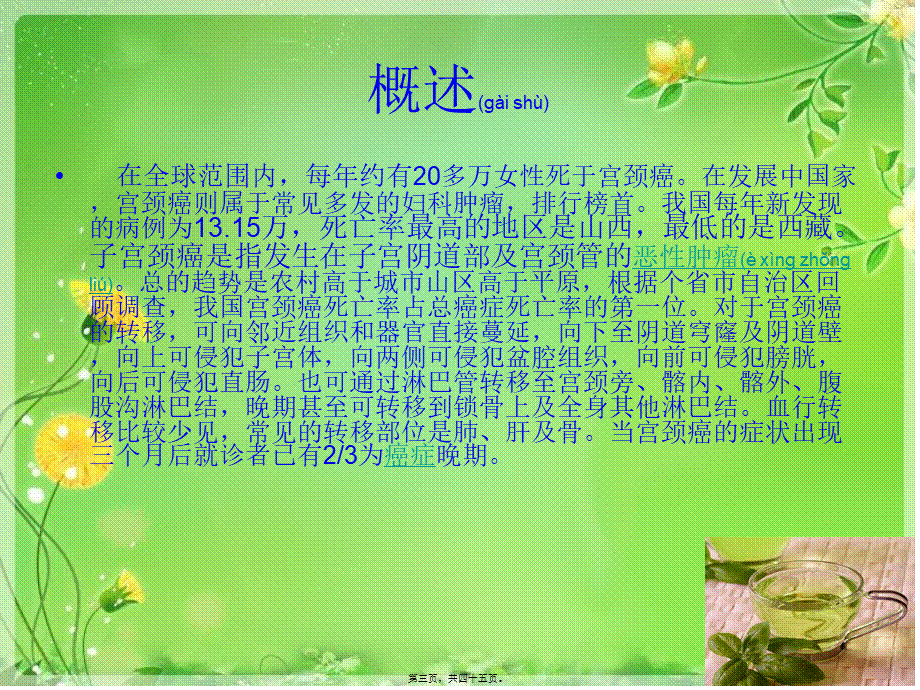 概述(gài shù)
• 在全球范围内，每年约有20多万女性死于宫颈癌。在发展中国家
，宫颈癌则属于常见多发的妇科肿瘤，排行榜首。我国每年新发现
的病例为13.15万，死亡率最高的地区是山西，最低的是西藏。
子宫颈癌是指发生在子宫阴道部及宫颈管的恶性肿瘤(è xìng zhǒng
liú)。总的趋势是农村高于城市山区高于平原，根据个省市自治区回
顾调查，我国宫颈癌死亡率占总癌症死亡率的第一位。对于宫颈癌
的转移，可向邻近组织和器官直接蔓延，向下至阴道穹窿及阴道壁
，向上可侵犯子宫体，向两侧可侵犯盆腔组织，向前可侵犯膀胱，
向后可侵犯直肠。也可通过淋巴管转移至宫颈旁、髂内、髂外、腹
股沟淋巴结，晚期甚至可转移到锁骨上及全身其他淋巴结。血行转
移比较少见，常见的转移部位是肺、肝及骨。当宫颈癌的症状出现
三个月后就诊者已有2/3为癌症晚期。
第三页，共四十五页。